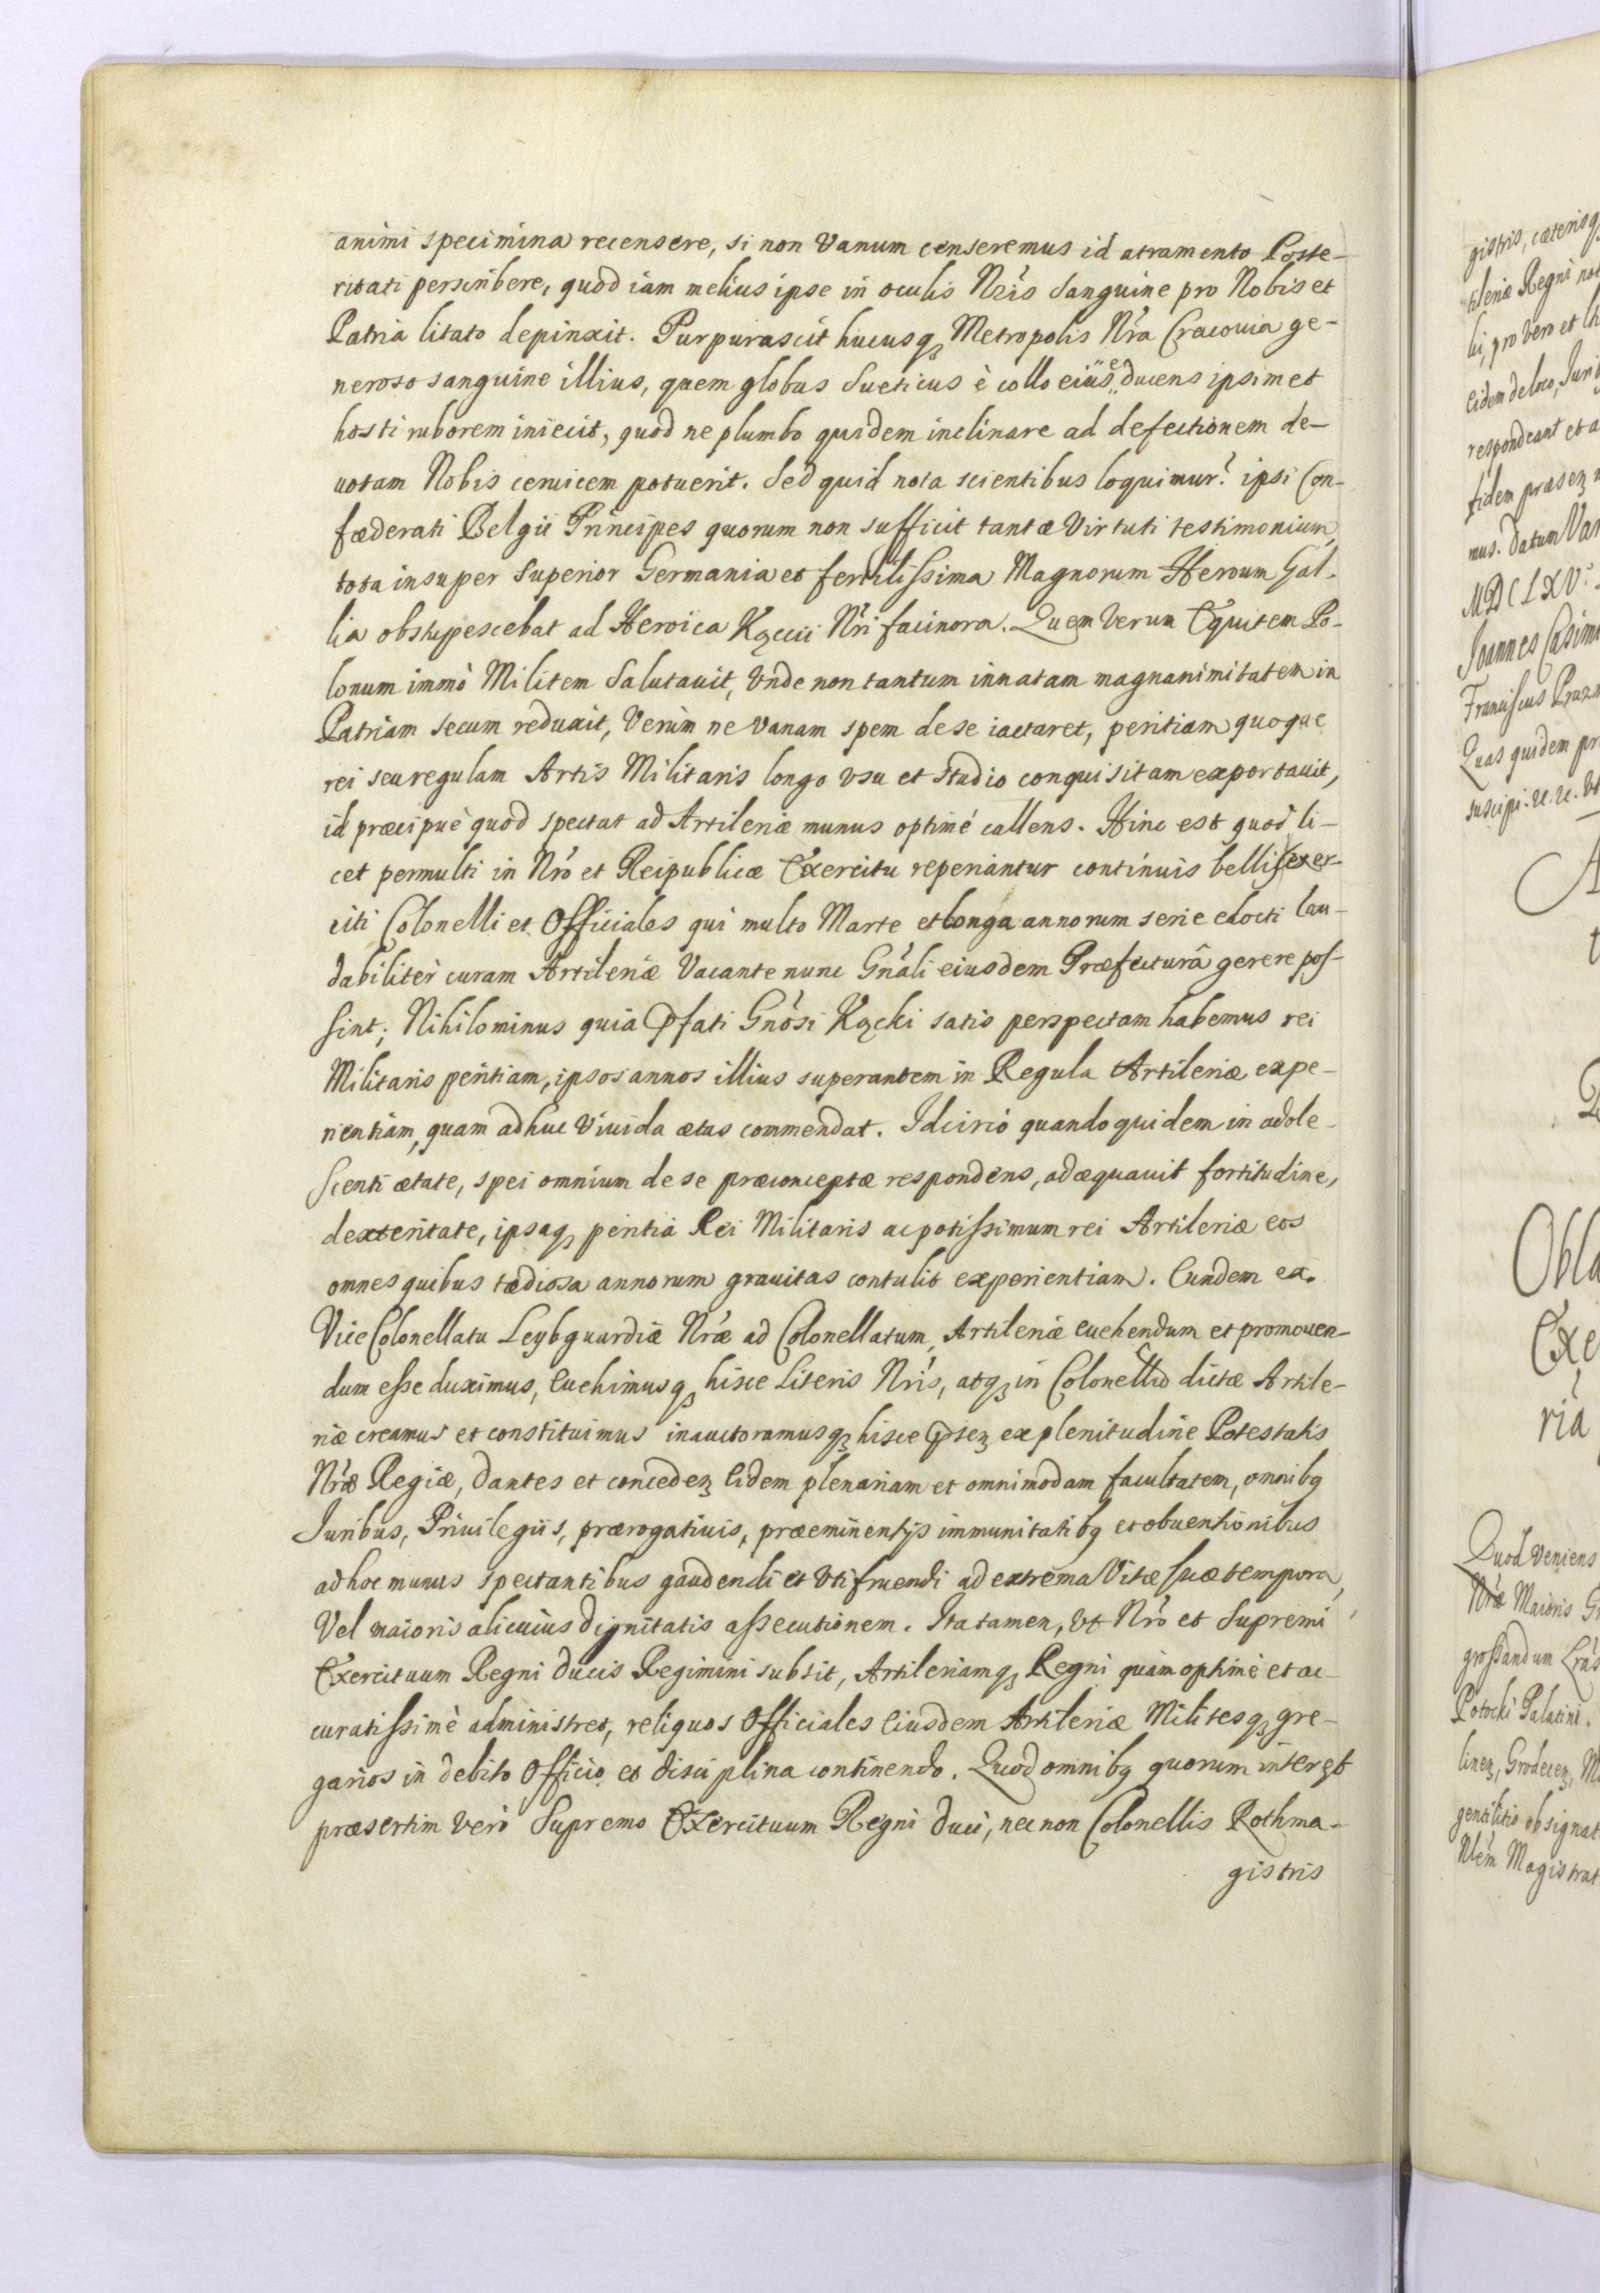 animi specimina recensere, si non vanum censeremus id atramento Poste-
ritati perscribere, quod iam melius ipse in oculis Nris Sanguine pro Nobis et
Patria litato depinxit. Purpurascit hucusq₃ Metropolis Nra Cracouia ge-
neroso sanguine illius, quem globus Sueticus è collo eius educens ipsimet
hosti ruborem iniecit, quod ne plumbo quidem inclinare ad defectionem de-
uotam Nobis ceruicem potuerit. Sed quid nota scientibus loquimur? ipsi Con-
fœderati Belgii Principes quorum non sufficit tantæ Virtuti testimonium,
tota insuper Superior Germania et fertilissima Magnorum Heroum Gal-
lia obstupescebat ad Heroica Kąccii Nri facinora. Quem verum Equitem Po-
lonum immò Militem Salutauit, Vnde non tantum innatam magnanimitatem in
Patriam secum reduxit, Verùm ne vanam spem de se iactaret, peritiam quoque
rei seu regulam Artis Militaris longo vsu et studio conquisitam exportauit,
id præcipuè quod spectat ad Artileriæ munus optimé callens. Hinc est quod li-
cet permulti in Nro et Reipublicæ Exercitu reperiantur continuis bellis exer-
citi Colonelli et Officiales qui multo Marte et longa annorum serie edocti lau-
dabiliter curam Artileriæ Vacante nunc Gnali eiusdem Præfecturâ gerere pos-
sint; Nihilominus quia Pfati Gnosi Kącki satis perspectam habemus rei
Militaris peritiam, ipsos annos illius superantem in Regula Artileriæ expe-
rientiam, quam adhuc Viuida ætas commendat. Idcircó quandoquidem in adole-
scenti ætate, spei omnium de se præconceptæ respondens, adæquauit fortitudine,
dexteritate, ipsaq₃ peritia Rei Militaris ac potissimum rei Artileriæ eos
omnes quibus tædiosa annorum grauitas contulit experientiam. Eundem ex
Vice Colonellatu Leybguardiæ Nræ ad Colonellatum Artileriæ euehendum et promouen-
dum esse duximus, Euehimusq₃ hisce Literis Nris, atq₃ in Colonellū dictæ Artile-
riæ creamus et constituimus inauctoramusq₃ hisce Psen₃ ex plenitudine Potestatis
Nræ Regiæ, dantes et conceden₃ Eidem plenariam et omnimodam facultatem, omnibq
Iuribus, Priuilegiis, prærogatiuis, præeminentijs immunitatibq et obuentionibus
ad hoc munus spectantibus gaudendi et Vtifruendi ad extrema Vitæ suæ tempora,
Vel maioris alicuius dignitatis assecutionem. Ita tamen, Vt Nro et Supremi
Exercituum Regni Ducis Regimini subsit, Artileriamq₃ Regni quàm optimè et ac-
curatissimè administret, reliquos Officiales Eiusdem Artileriæ Militesq₃ gre-
garios in debito Officio et disciplina continendo. Quod omnibq quorum interest
præsertim verò Supremo Exercituum Regni Duci, nec non Colonellis Rothma-
gistris
gistris, cæterisq₃
tileriæ Regni not
eidem de loco, Iuri
respondeant et a
fidem præsen₃
mus. Datum Var
MDCLXV
Joannes Casimi
Quas quidem pr
Obla
Exe
ria
Quod Veniens
Nræ Maioris G
grossandum
Potocki Palatini
linen₃, Grodecen₃
gentilitio obsignat
Magistrat